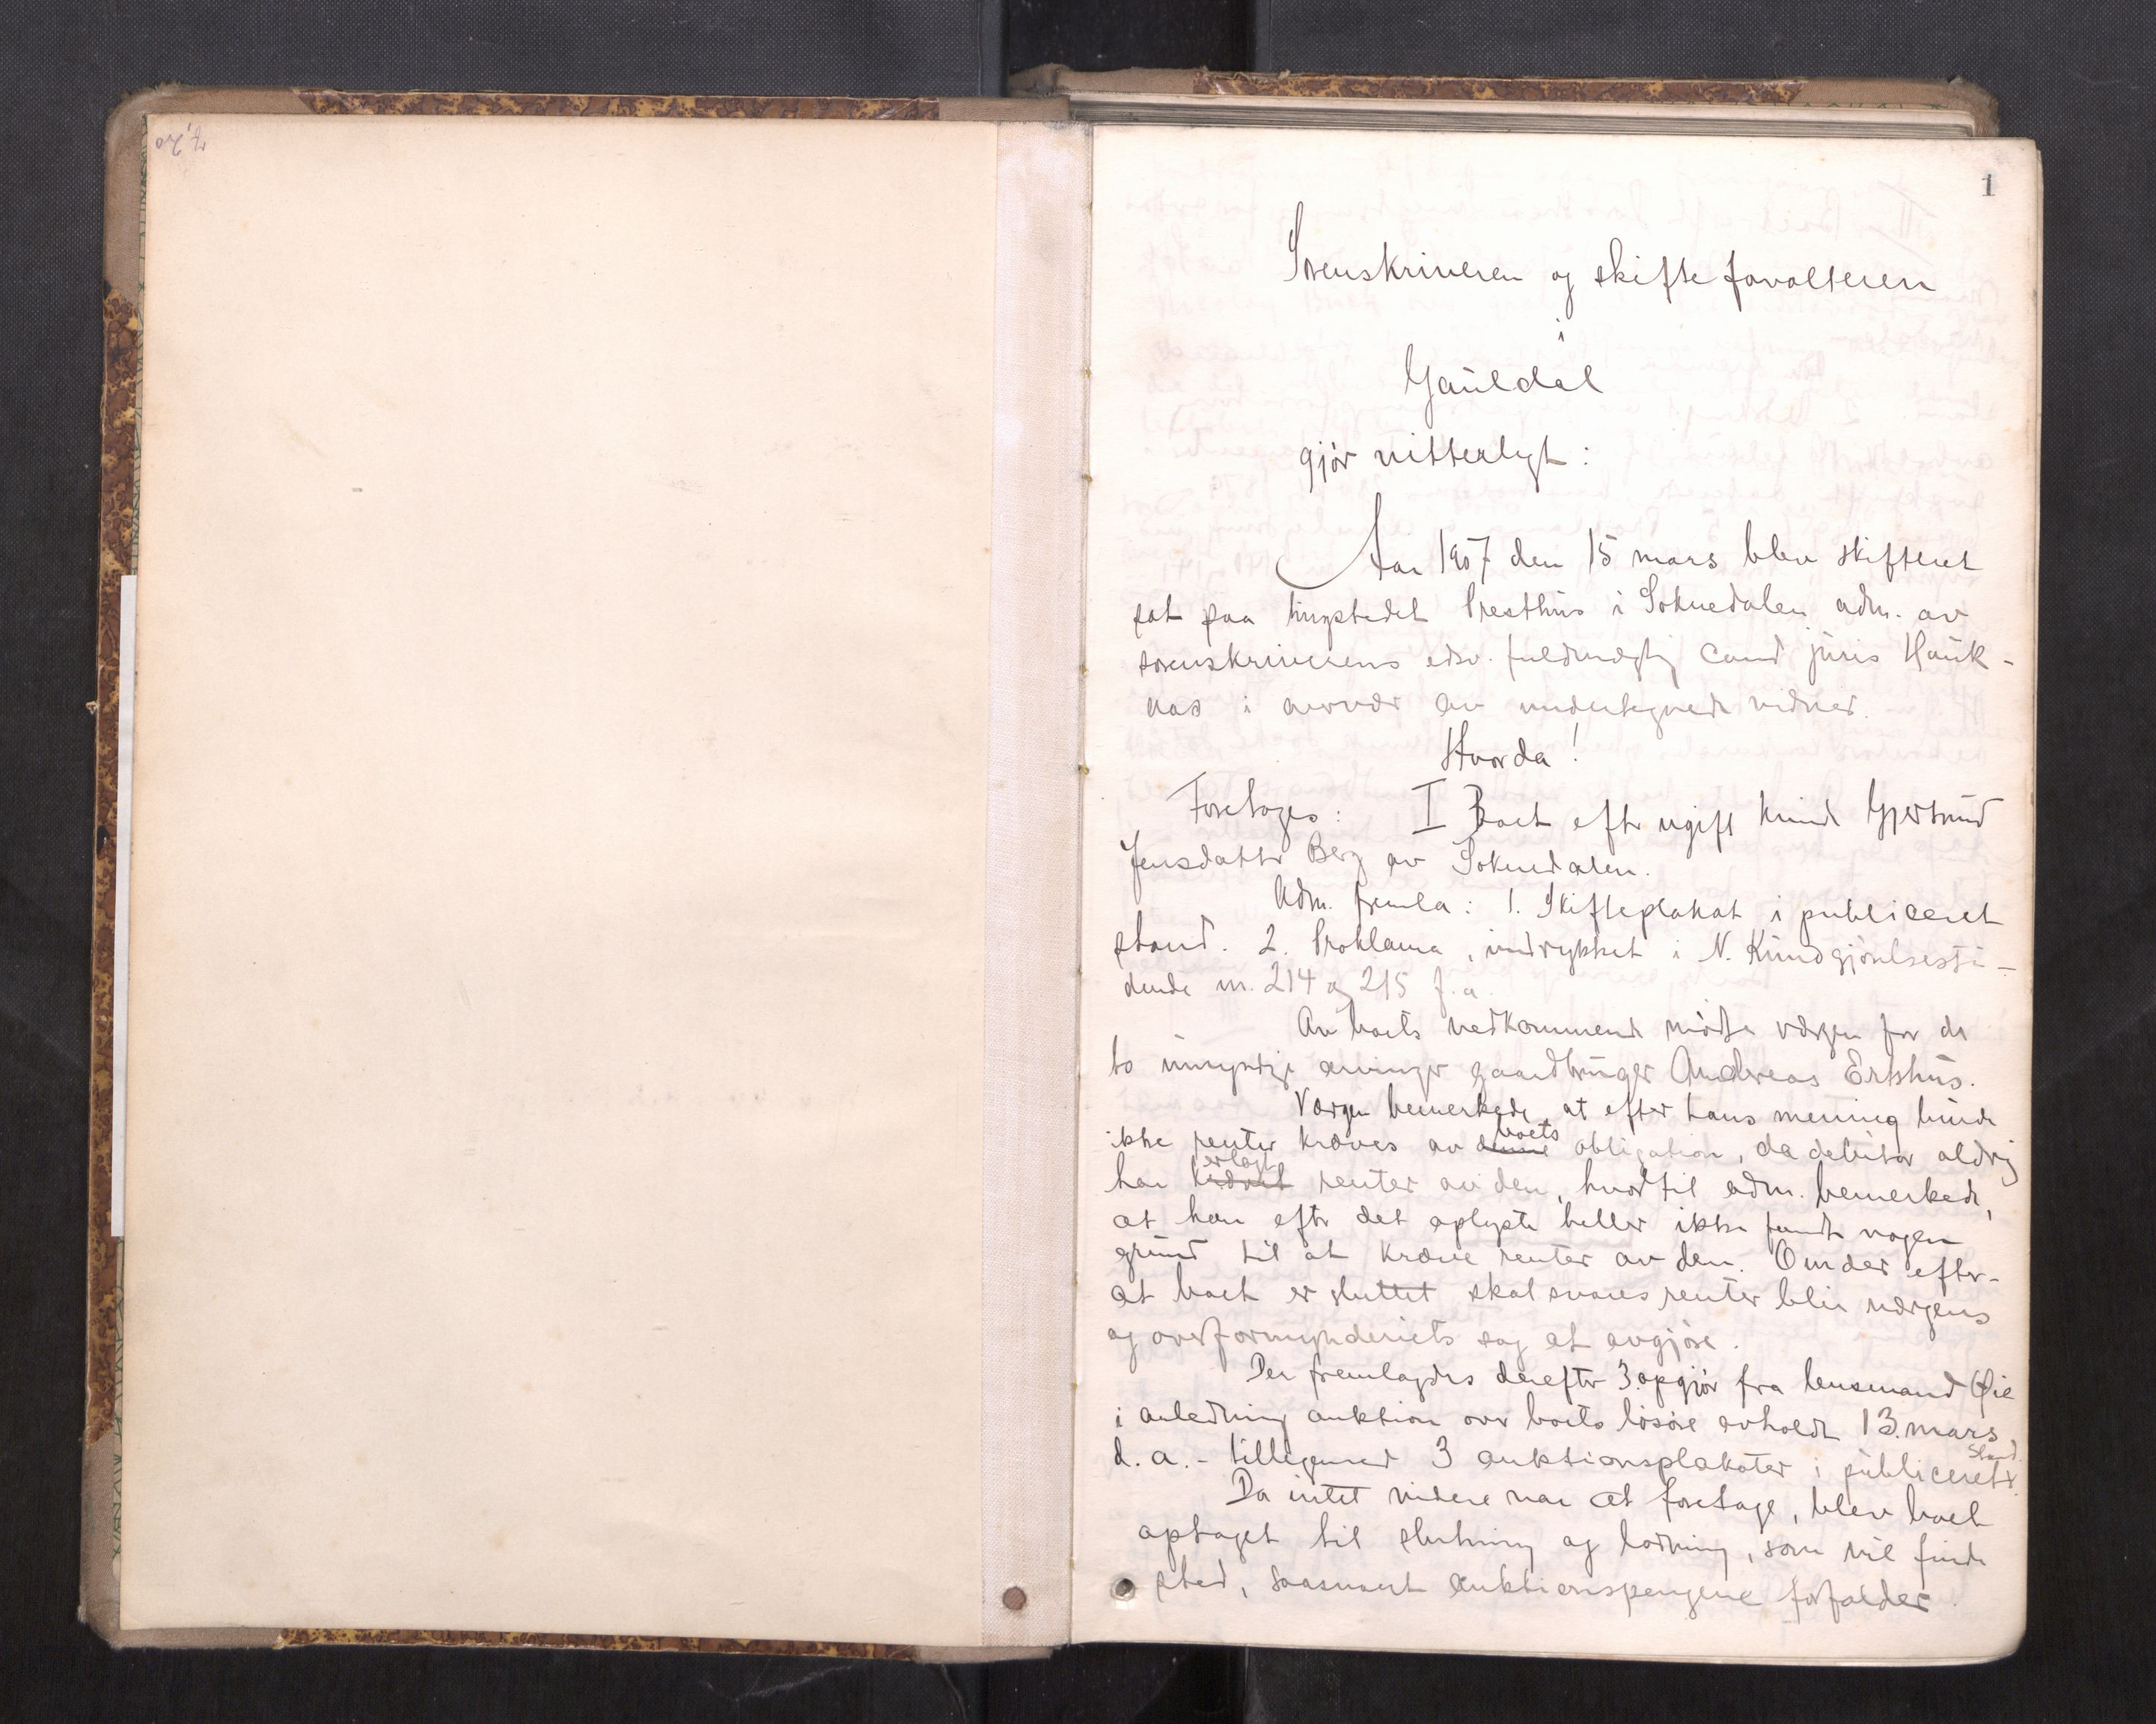 1
Sorenskriveren og skifteforvalteren
i
Gauldal
gjør vitterligt:
Aar 1907 den 15 mars blev skifteret
sat paa tingstedet Presthus i Soknedalen adm. av
sorenskriverens edsv. fuldmægtig cand juris Hauk-
næs i overvær av undertegnede vidner.
Hvorda!
Foretoges: I Boet efter ugift kvinde Gjertrud
Jensdatter Berg av Soknedalen.
Adm. fremla: 1. Skifteplakat i publiceret
stand. 2. Proklama, indrykket i N. Kundgjørelsesti-
dende nr. 214 og 215 f.a.
Av boets vedkommende mødte værgen for de
to umyndige arvinger gaardbruger Andreas Ertshus.
Værgen bemerkede, at efter hans mening burde
ikke renter kræves av denne boets obligation, da debitor aldrig
har krævet erlagt renter av den, hvortil adm. bemerkede,
at han efter det oplyste heller ikke fandt nogen
grund til at kræve renter av den. Om der efter-
at boet er sluttet skal svares renter blir værgens
og overformynderiets sag at avgjøre.
Der fremlagdes derefter 3. opgjør fra lensmand Øie
i anledning auktion over boets løsøre avholdt 13. mars
d.a. - tillegemed 3 auktionsplakater i publiceret stand.
Da intet videre var at foretage, blev boet
optaget til slutning og lodning, som vil finde
sted, saasnart auktionspengene forfalder.